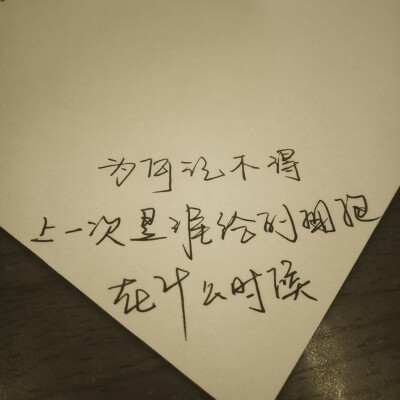 为何记不得
上一次是谁给的拥抱
在什么时候